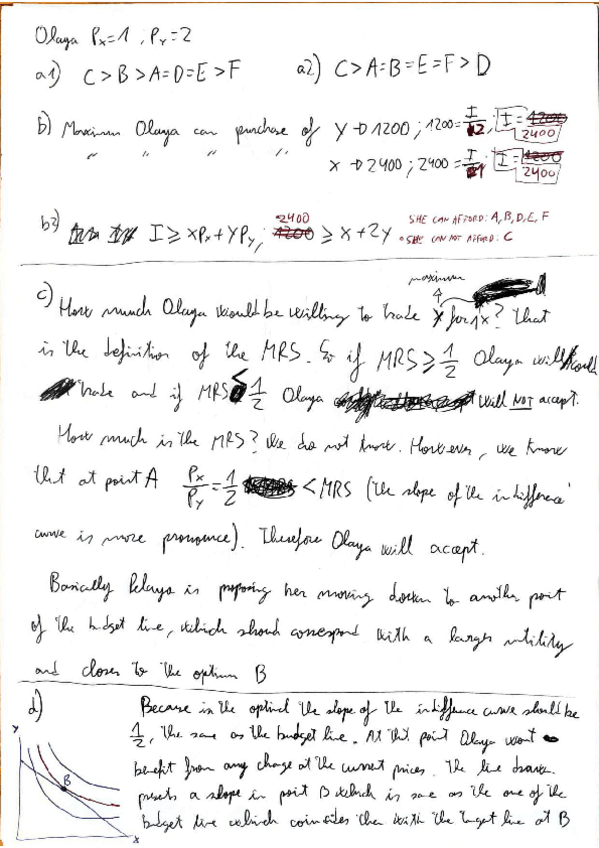 Olaya Px=1 ; Py=2
a1) C>B>A=D=E>F a2) C>A=B=E=F>D
b) Maximum Olaya can purchase of Y → 1200 ; 1200 = I/2 ; I = 2400
" " " " x → 2400 ; 2400 = I/1 ; I = 2400
b2) I ≥ xPx + yPy ; 2400 ≥ x + 2y
SHE CAN AFFORD: A, B, D, E, F
• SHE CAN NOT AFFORD: C
maximum
c) How much Olaya would be willing to trade Y for 1x? That
is the definition of the MRS. So if MRS ≥ 1/2 Olaya would
trade and if MRS < 1/2 Olaya will NOT accept.
How much is the MRS? We do not know. However, we know
that at point A Px/Py = 1/2 < MRS (the slope of the indifference
curve is more pronounce). Therefore Olaya will accept.
Basically Pelayo is proposing her moving down to another point
of the budget line, which should correspond with a larger utility
and closer to the optimum B
d) Because in the optimal the slope of the indifference curve should be
1/2, the same as the budget line. At that point Olaya wont
benefit from any change at the current prices. The line drawn
presents a slope in point B which is same as the one of the
budget line which coincides then with the target line at B
Y
B
x